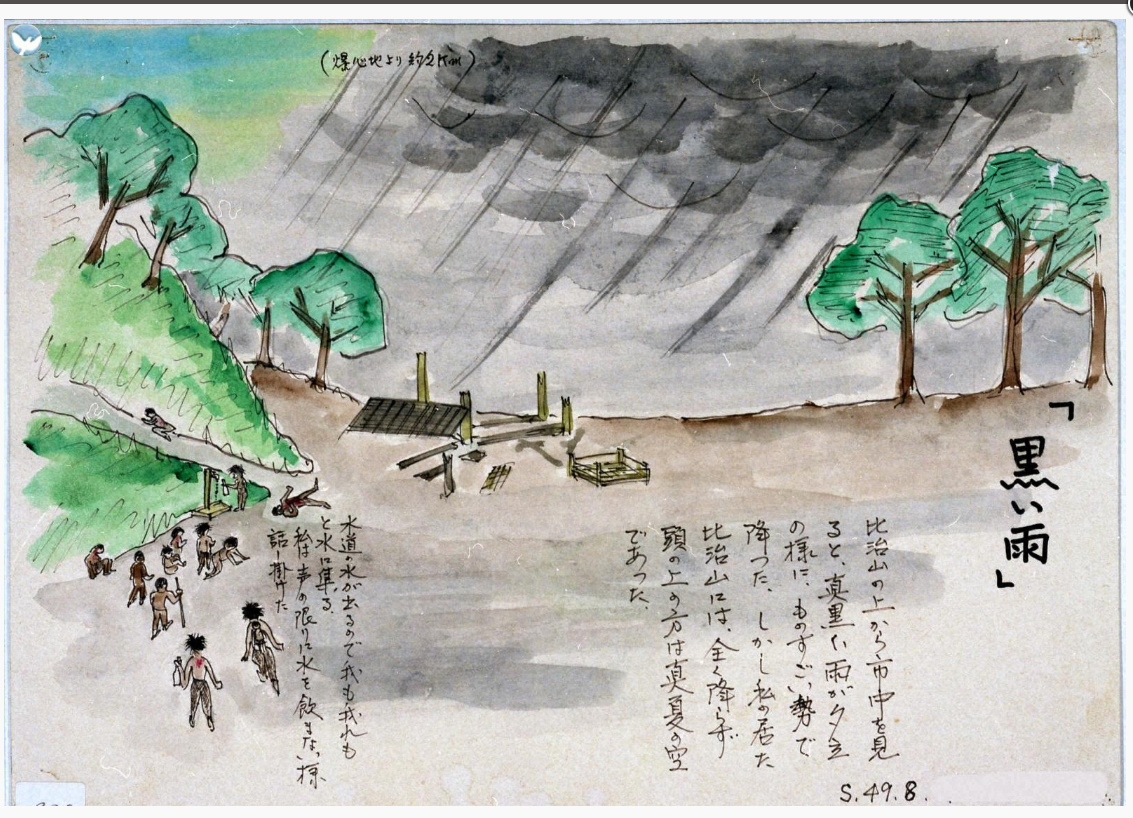 （爆心地より約2Km）
「黒い雨」
比治山の上から市中を見
ると、真黒い雨が夕立
の様に、ものすごい勢で
降つた、しかし私の居た
比治山には、全く降らず
頭の上の方は真夏の空
であった、
水道の水が出るので我も我れも
と水に集る、
私は声の限りに水を飲まない様
話し掛けた
S.49.8.